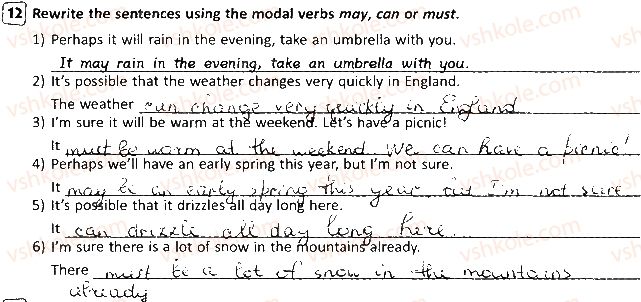 12 Rewrite the sentences using the modal verbs may, can or must.
1) Perhaps it will rain in the evening, take an umbrella with you.
It may rain in the evening, take an umbrella with you.
2) It's possible that the weather changes very quickly in England.
The weather can change very quickly in England
3) I'm sure it will be warm at the weekend. Let's have a picnic!
It must be warm at the weekend. We can have a picnic!
4) Perhaps we'll have an early spring this year, but I'm not sure.
It may be an early spring this year but I'm not sure
5) It's possible that it drizzles all day long here.
It can drizzle all day long here.
6) I'm sure there is a lot of snow in the mountains already.
There must be a lot of snow in the mountains
already